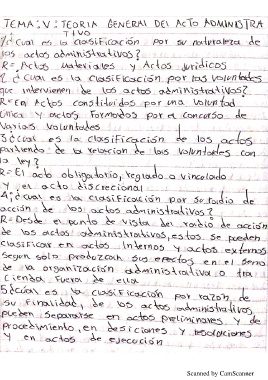 TEMA: V: TEORIA GENERAL DEL ACTO ADMINISTRA
TIVO
1¿Cual es la clasificación por su naturaleza de
los actos administrativos?
R= Actos Materiales y Actos jurídicos
2 ¿Cual es la clasificación por las voluntades
que intervienen de los actos administrativos?
R= en Actos constituidos por una voluntad
única y actos formados por el concurso de
varias voluntades
3¿Cúal es la clasificación de los actos
partiendo de la relación de las voluntades con
la ley?
R= El acto obligatorio, reglado o vinculado
y el acto discrecional
4¿Cual es la clasificación por su radio de
acción de los actos administrativos?
R= Desde el punto de vista del radio de acción
de los actos administrativos, estos se pueden
clasificar en actos Internos y actos externos
según solo produzcan sus efectos en el seno
de la organización administrativa o tra
ciendan fuera de ella
5¿Cúal es la clasificación por razón de
su finalidad, de los actos administrativos,
pueden separarse en actos preliminares y de
procedimiento, en desiciones y resoluciones
y en actos de ejecución
Scanned by CamScanner